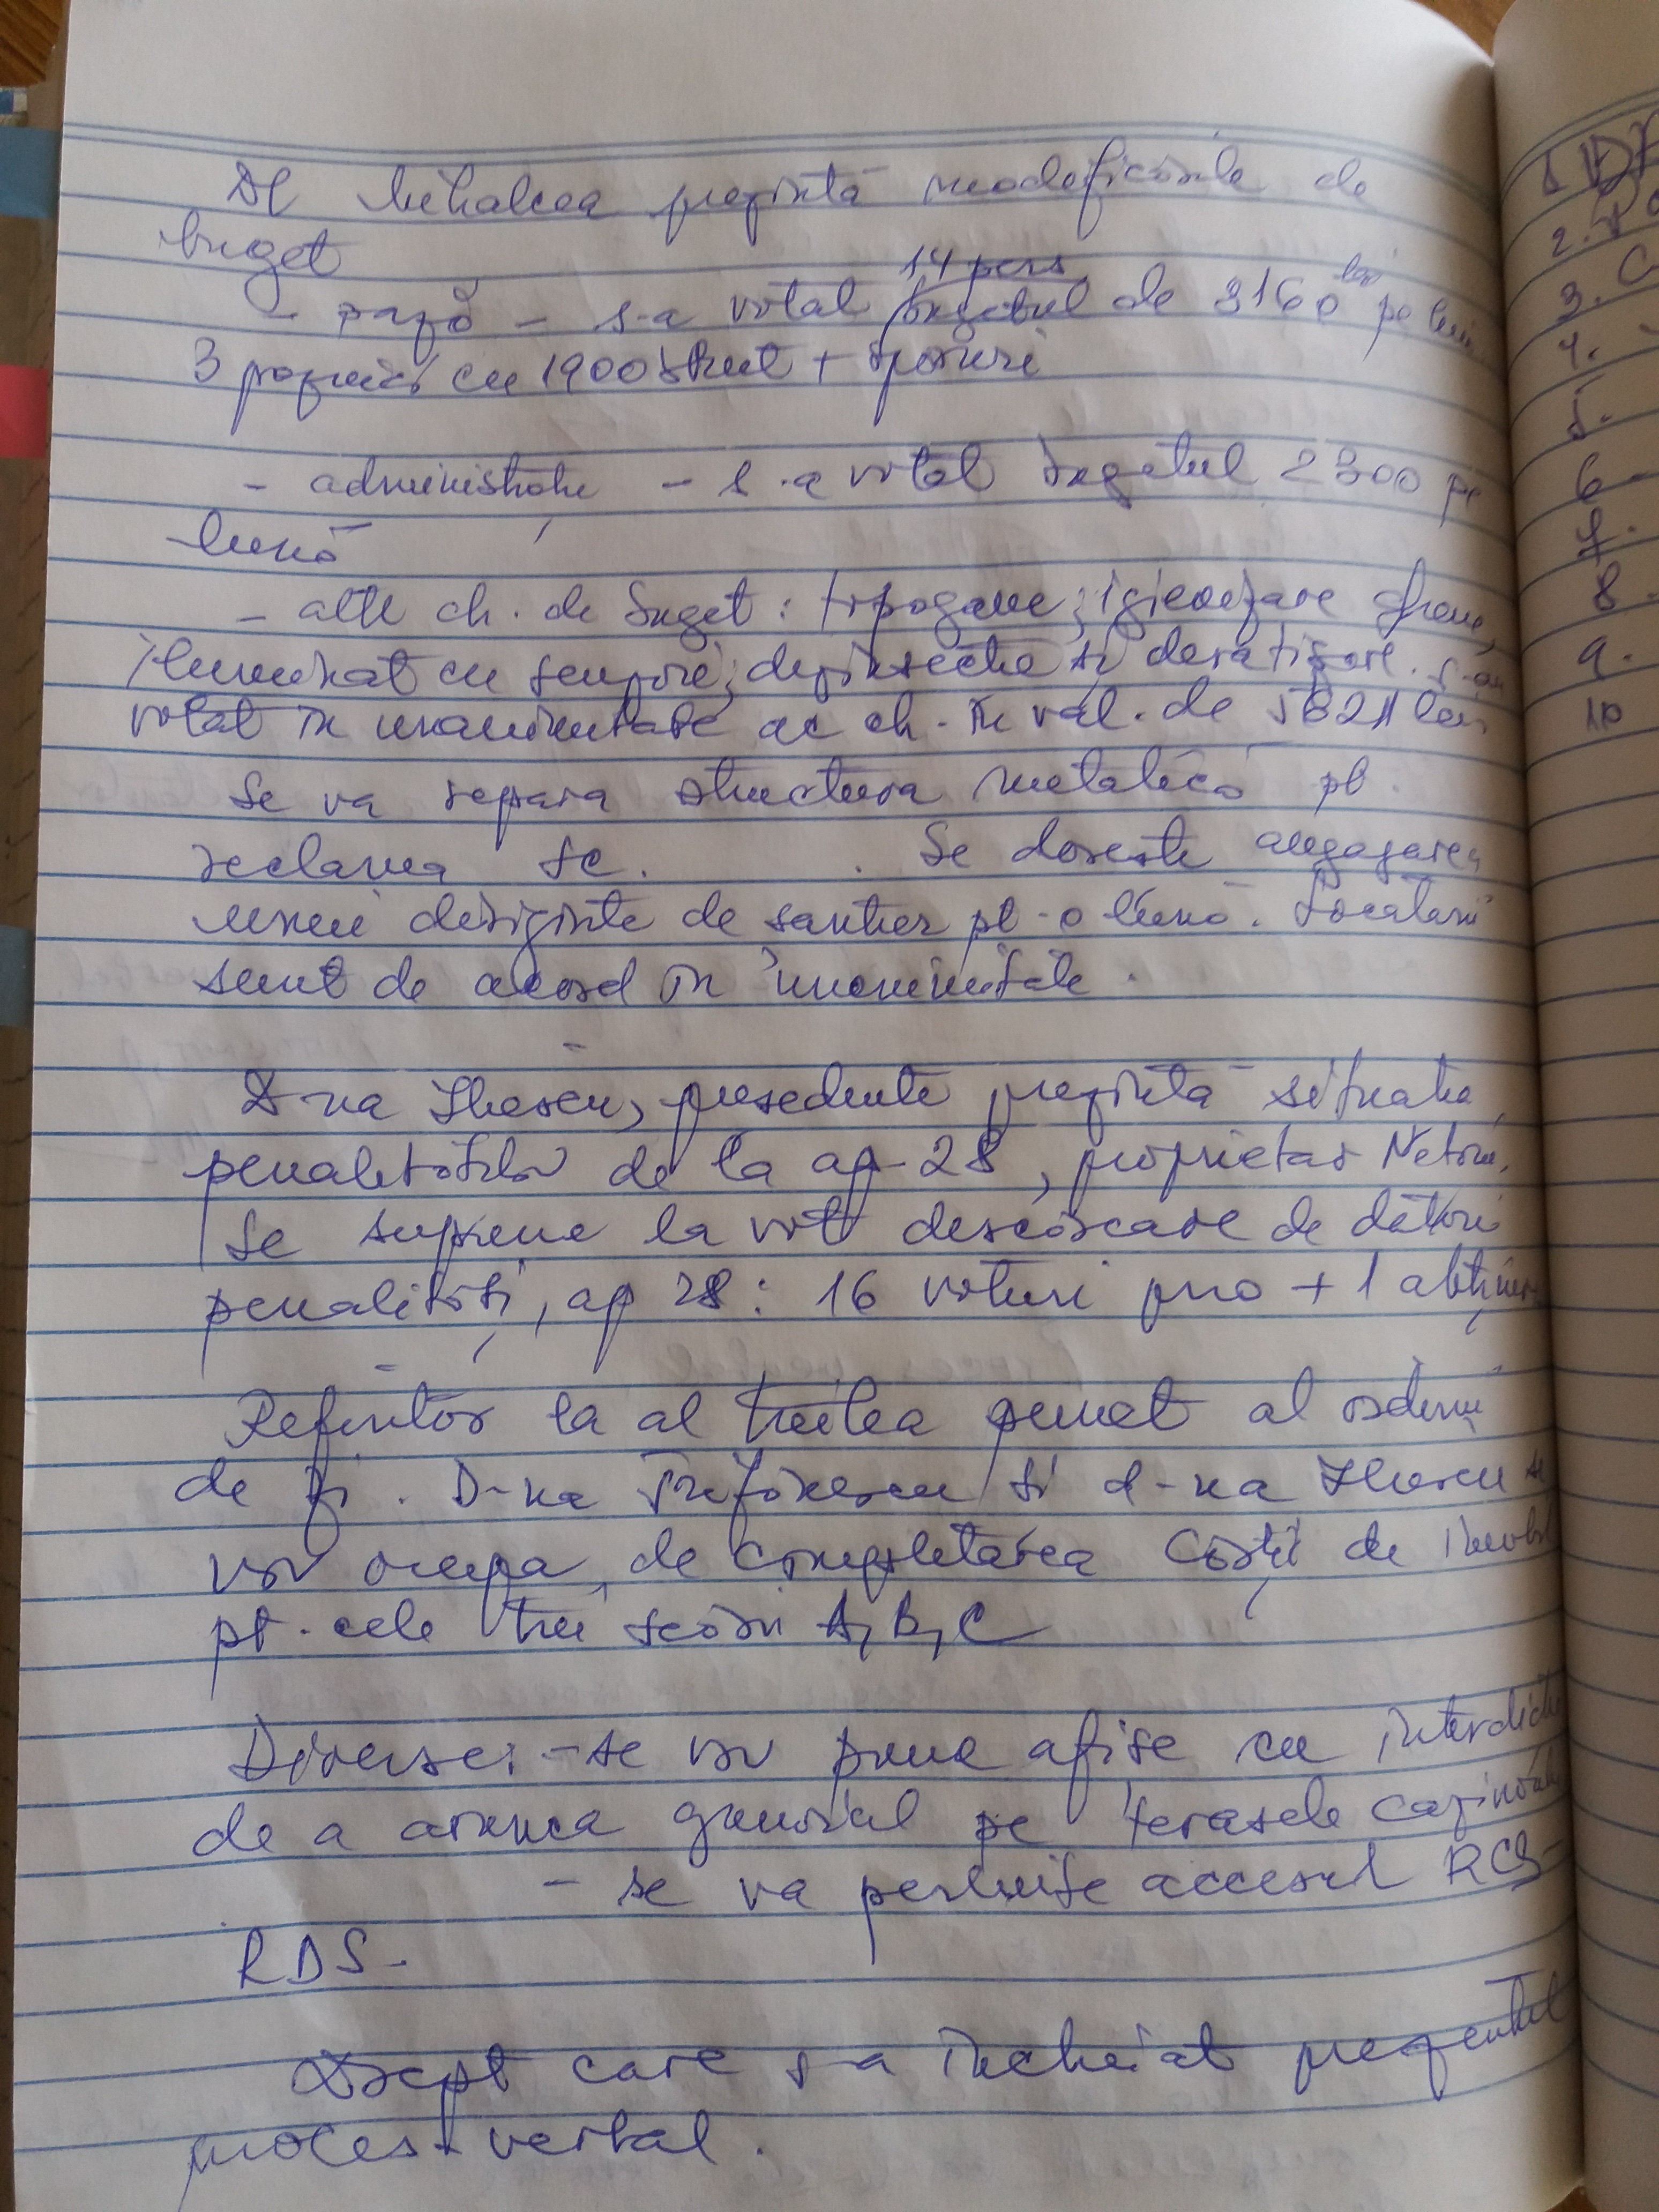 Dl Mihalcea prezintă modificările de
buget
14 pers
- pază - s-a votat bugetul de 3160 lei pe lună
3 paznici cu 1900 brut + sporuri
- administrație - s-a votat bugetul 2300 pe
lună
- alte ch. de buget: topogane; igienizare ghene,
iluminat cu senzori; dezinsecție și deratizare. s-au
votat în unanimitate ac ch. în val. de 5821 lei
Se va repara structura metalică pt.
reclama sc. . Se dorește angajarea
unui diriginte de santier pt. o lună. Locatarii
sunt de acord în unanimitate.
D-na Iliescu, presedinte prezintă situația
penalităților de la ap. 28, proprietar
Se supune la vot descărcare de datorii
penalități, ap 28: 16 voturi pro + 1 abținere
Referitor la al treilea punct al ordinii
de zi. D-na Trifănescu și d-na Iliescu se
vor ocupa de completarea Cărții de imobil
pt. cele trei scări A, B, C
Diverse: - se vor pune afișe cu interdicție
de a arunca gunoiul pe terasele
- se va permite accesul RCS-
RDS.
Drept care s-a încheiat prezentul
proces verbal.
1
2.
3. C
4.
5.
6.
7.
8.
9.
10